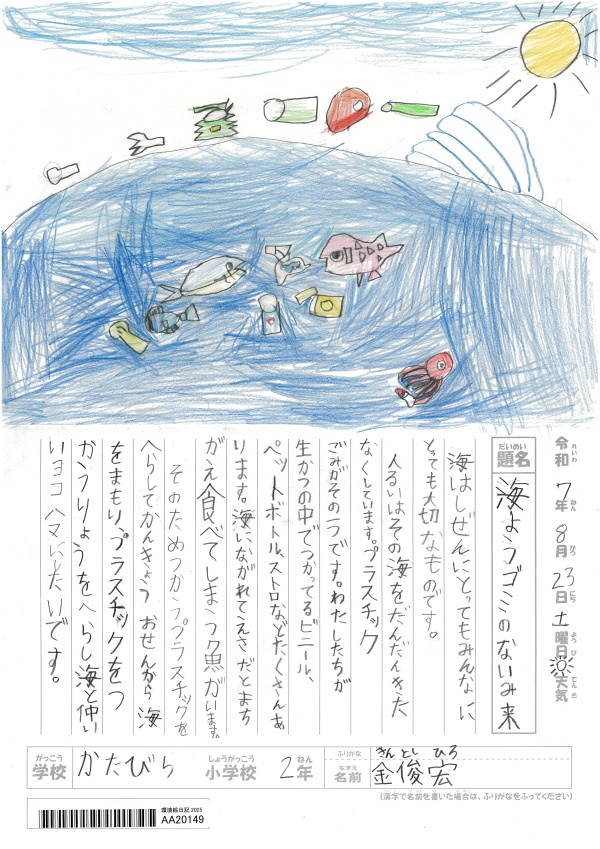 令和 7年 8月 23日 土曜日 天気
れいわ ねん がつ にち ようび てんき
だいめい
題名 海ようゴミのないみ来
海はしぜんにとってもみんなに、
とっても大切なものです。
人るいはその海をだんだんきた
なくしています。プラスチック
ごみがその一つです。わたしたちが
生かつの中でつかってるビニール、
ペットボトル、ストロなどたくさんあ
ります。海にながれてえさだとまち
がえ食べてしまう魚がいます。
そのためつかうプラスチックを
へらしてかんきょう おせんから 海
をまもり、プラスチックをつ
かうりょうをへらし海と仲い
いヨコハマにしたいです。
がっこう しょうがっこう ねん
学校 かたびら 小学校 2年
ふりがな きん とし ひろ
なまえ
名前 金俊宏
(漢字で名前を書いた場合は、ふりがなをふってください)
環境絵日記 2025
AA20149